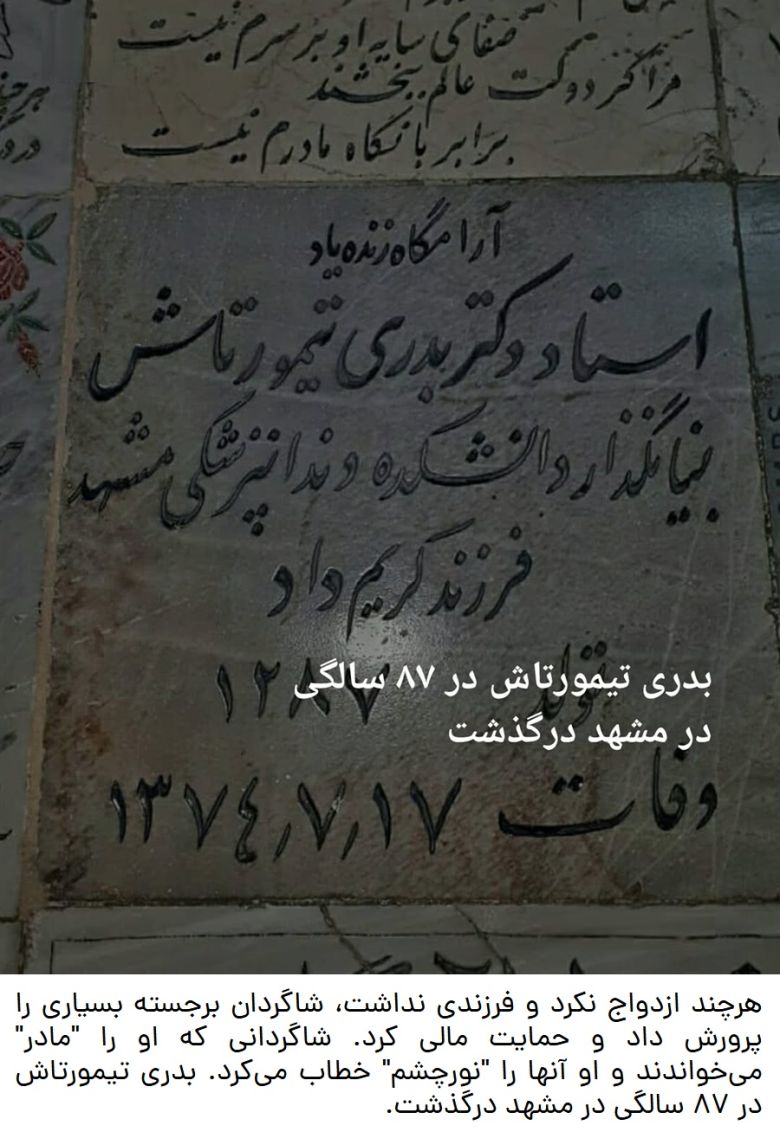 صفای سایه او بر سرم نیست
مرا گر دولت عالم ببخشند
برابر با نگاه مادرم نیست
آرامگاه زنده یاد
استاد دکتر بدری تیمورتاش
بنیانگذار دانشکده دندانپزشکی مشهد
فرزند کریم داد
تولد ۱۲۸۷
بدری تیمورتاش در ۸۷ سالگی
در مشهد درگذشت
وفات ۱۳۷٤٫۷٫۱۷
هرچند ازدواج نکرد و فرزندی نداشت، شاگردان برجسته بسیاری را
پرورش داد و حمایت مالی کرد. شاگردانی که او را "مادر"
می‌خواندند و او آنها را "نورچشم" خطاب می‌کرد. بدری تیمورتاش
در ۸۷ سالگی در مشهد درگذشت.